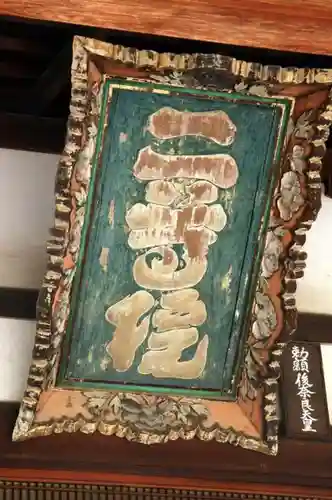 二尊院
勅額 後奈良天皇